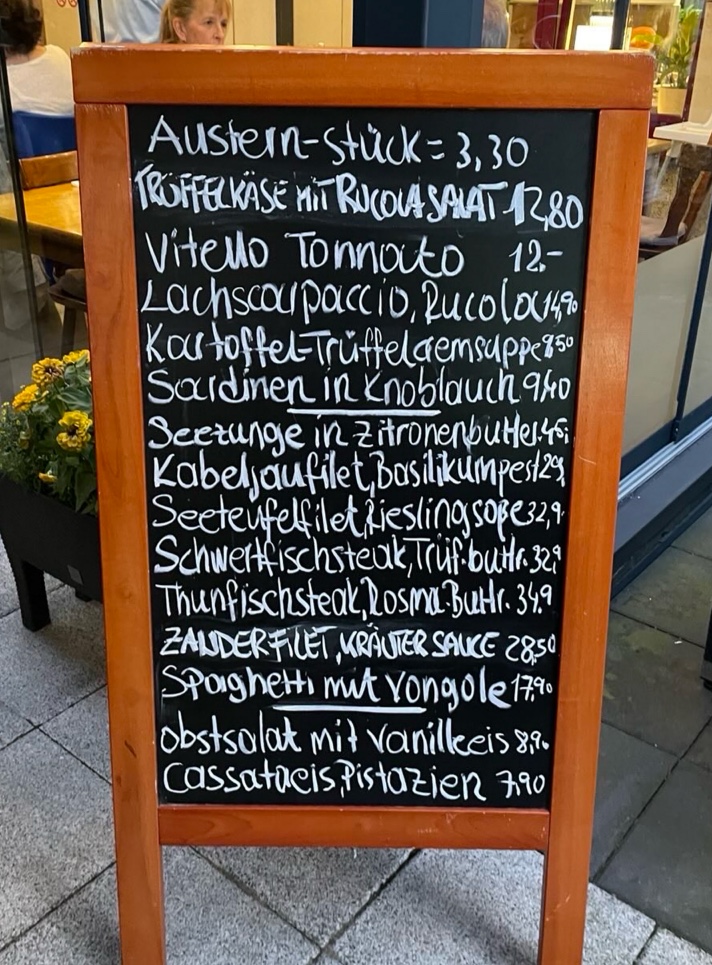 Austern-Stück = 3,30
TRÜFFELKÄSE MIT RUCOLASALAT 12,80
Vitello Tonnato 12.-
Lachscarpaccio, Rucola 14,90
Kartoffel-Trüffelcremsuppe 8,50
Sardinen in Knoblauch 9,40
Seezunge in Zitronenbutter.
Kabeljaufilet, Basilikumpest
Seeteufelfilet, Rieslingsoße 32,9
Schwertfischsteak, Trüf.buttr. 32,9
Thunfischsteak, Rosma.Buttr. 34,9
ZANDERFILET, KRÄUTER SAUCE 28,50
Spaghetti mit Vongole 17,90
obstsalat mit Vanilleeis 8,9.
Cassataeis, Pistazien 7,90